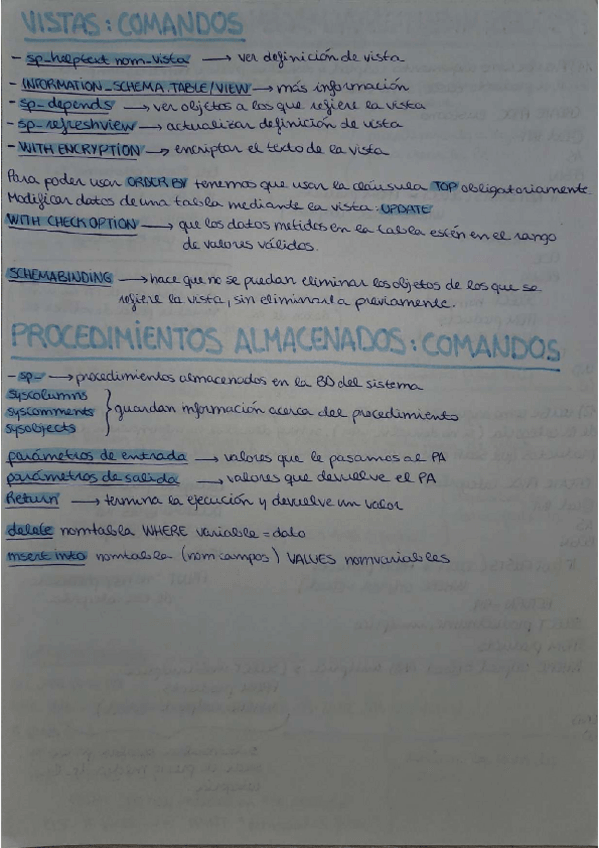 VISTAS: COMANDOS
- sp_helptext nom_vista → ver definición de vista
- INFORMATION_SCHEMA.TABLE/VIEW → más información
- sp_depends → ver objetos a los que refiere la vista
- sp_refreshview → actualizar definición de vista
- WITH ENCRYPTION → encriptar el texto de la vista
Para poder usar ORDER BY tenemos que usar la cláusula TOP obligatoriamente.
Modificar datos de una tabla mediante la vista: UPDATE
WITH CHECK OPTION → que los datos metidos en la tabla estén en el rango
de valores válidos.
SCHEMABINDING → hace que no se puedan eliminar los objetos de los que se
refiere la vista, sin eliminarla previamente.
PROCEDIMIENTOS ALMACENADOS: COMANDOS
- sp_ → procedimientos almacenados en la BD del sistema
syscolumns
syscomments } guardan información acerca del procedimiento
sysobjects
parámetros de entrada → valores que le pasamos al PA
parámetros de salida → valores que devuelve el PA
Return → termina la ejecución y devuelve un valor
delete nomtabla WHERE variable = dato
insert into nomtabla (nom campos) VALUES nomvariables